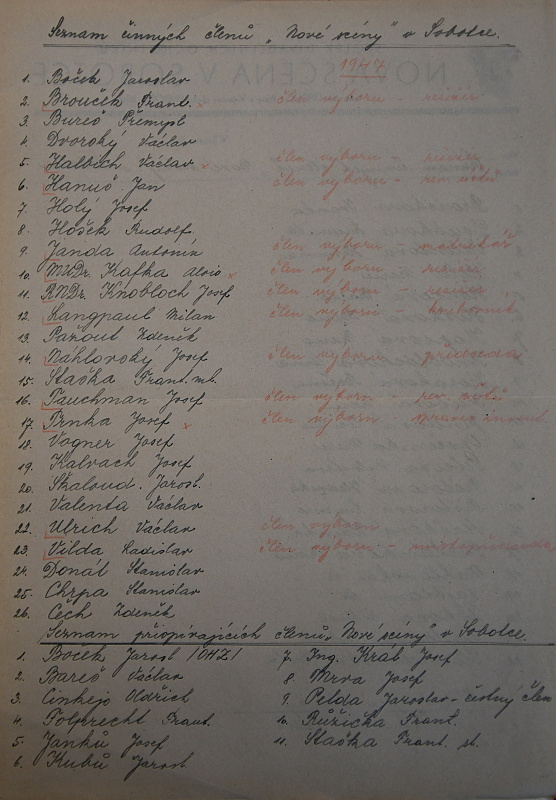 Seznam činných členů „Nové scény" v Sobotce.
1947
1. Boček Jaroslav
2. Brouček Frant. x člen výboru - revisor
3. Bureš Přemysl
4. Dvorský Václav
5. Halbich Václav x člen výboru - revisor
6. Hanuš Jan člen výboru - rev. účtů
7. Holý Josef
8. Hošek Rudolf
9. Janda Antonín člen výboru
10. MUDr. Kafka Alois x člen výboru - revisor
11. RNDr. Knobloch Josef člen výboru - revisor
12. Langpaul Milan člen výboru - knihovník
13. Pažout Zdeněk
14. Náhlovský Josef člen výboru předseda
15. Staška Frant. ml.
16. Tauchman Josef člen výboru - rev. účtů
17. Trnka Josef x člen výboru správce invent.
18. Vogner Josef
19. Kalvach Josef
20. Škaloud Jarosl.
21. Valenta Václav
22. Ulrich Václav člen výboru
23. Vilda Ladislav člen výboru - místopředseda
24. Donát Stanislav
25. Chrpa Stanislav
26. Čech Zdeněk
Seznam přispívajících členů „Nové scény" v Sobotce.
1. Boček Jarosl.
2. Bareš Václav
3. Oldřich
4. Folprecht Frant.
5. Janků Josef
6. Kubů Jarosl.
7. Ing. Král Josef
8. Mrva Josef
9. Pelda Jaroslav - čestný člen
10. Růžička Frant.
11. Staška Frant. st.